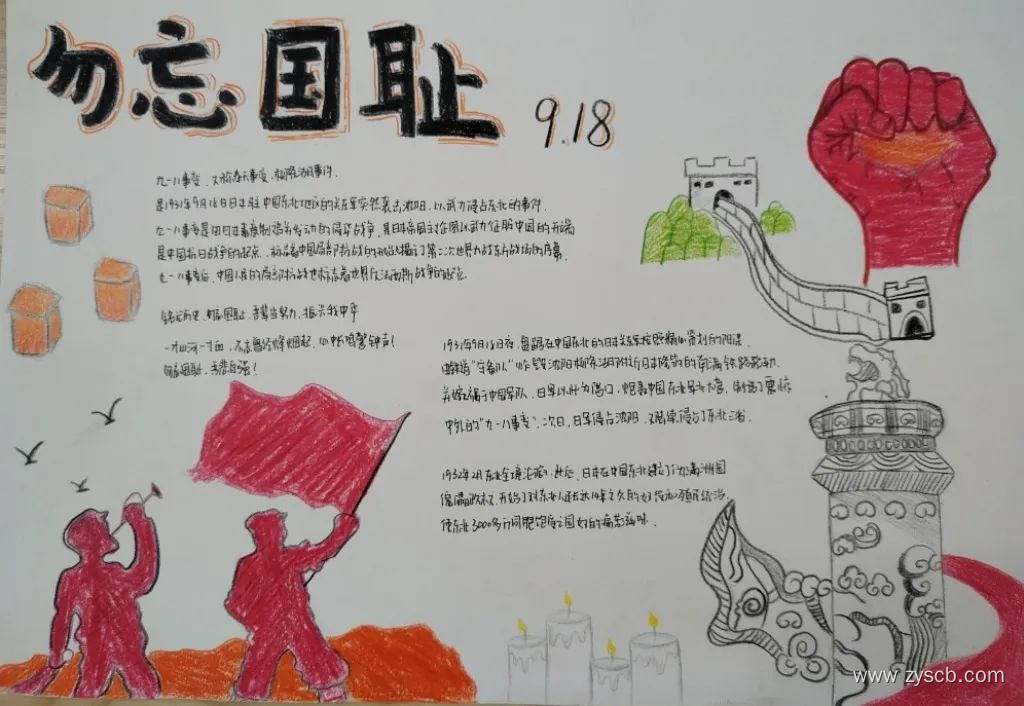 勿忘国耻
9.18
九一八事变，又称奉天事变、柳条湖事件。
是1931年9月18日日本驻中国东北地区的关东军突然袭击沈阳，以武力侵占东北的事件。
九一八事变是由日本蓄意制造并发动的侵华战争，是日本帝国主义企图以武力征服中国的开端
是中国抗日战争的起点，标志着中国局部抗战的开始揭开了第二次世界大战东方战场的序幕。
九一八事变后，中国人民的局部抗战也标志着世界反法西斯战争的起点
铭记历史，勿忘国耻，吾辈当努力，振兴我中华
一寸山河一寸血，不忘曾经烽烟起，心中长鸣警钟声！
勿忘国耻，吾辈自强！
1931年9月18日夜，盘踞在中国东北的日本关东军按照精心策划的阴谋，
由铁道"守备队"炸毁沈阳柳条湖附近日本修筑的南满铁路路轨，
并嫁祸于中国军队，日军以此为借口，炮轰中国东北军北大营，制造了震惊
中外的"九一八事变"。次日，日军侵占沈阳，又陆续侵占了东北三省。
1932年2月东北全境沦陷，此后，日本在中国东北建立了伪满洲国
傀儡政权，开始了对东北人民长达14年之久的奴役和殖民统治，
使东北3000多万同胞饱受亡国奴的痛苦滋味。
www.zyscb.com